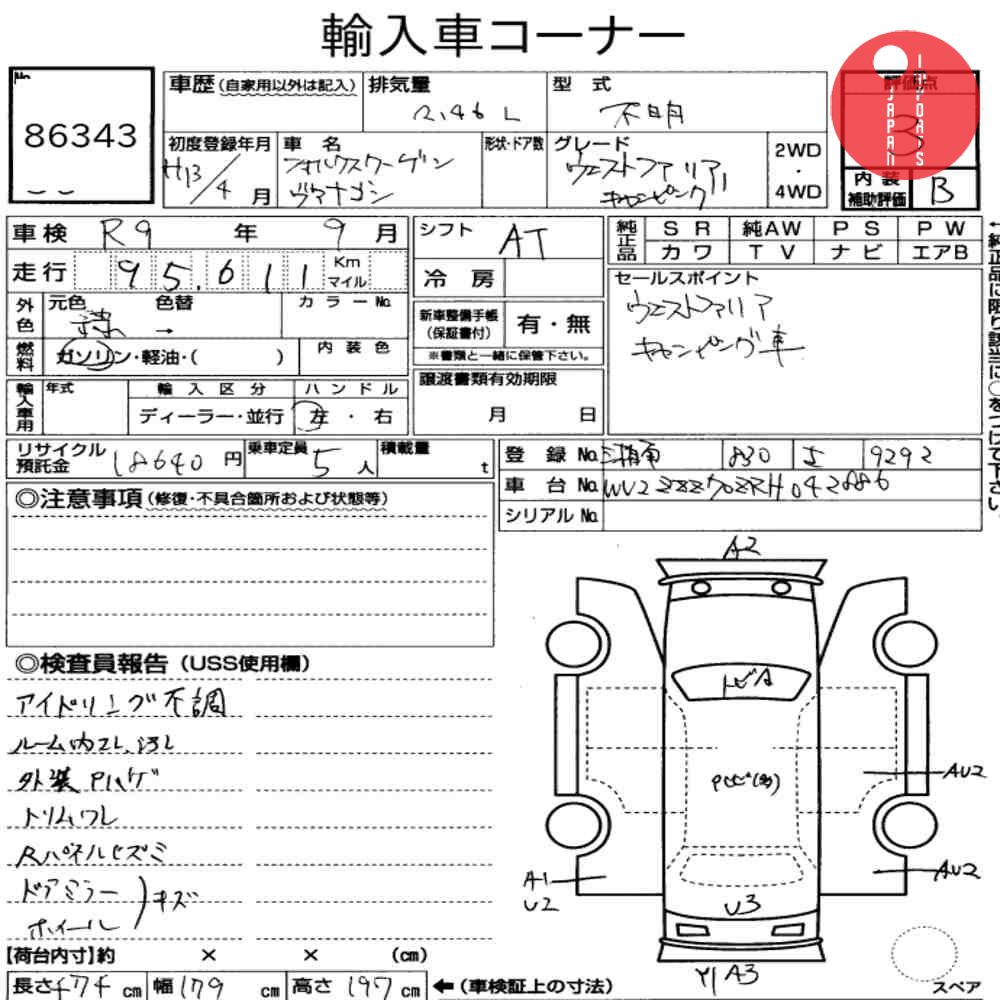 輸入車コーナー
No.
86343
車歴 (自家用以外は記入)
排気量
2.46 L
型 式
不明
評価点
3
JAPAN
IMPORTS
初度登録年月
H13/4 月
車 名
フォルクスワーゲン
ヴァナゴン
形状・ドア数
グレード
ウェストファリア
キャンピング
2WD
・
4WD
内 装
補助評価
B
車 検 R9 年 9 月
走 行 95,611
Km
マイル
シフト
AT
冷 房
純正品
S R
純AW
P S
P W
カ ワ
T V
ナ ビ
エアB
セールスポイント
ウェストファリア
キャンピング車
外色
元色
色替
→
カ ラ ー No.
燃料
ガソリン・軽油・( )
内 装 色
新車整備手帳
(保証書付)
有・無
※書類と一緒に保管下さい。
輸入車用
年式
輸 入 区 分
ハ ン ド ル
ディーラー・並行
左 ・ 右
譲渡書類有効期限
月 日
←純正品に限り該当に○をつけて下さい。
リサイクル
預託金
18640 円
乗車定員
5 人
積載量
t
登 録 No.
湘南 830 9292
車 台 No.
WV2ZZZ70ZRH042886
シリアル No.
◎注意事項 (修復・不具合箇所および状態等)
◎検査員報告 (USS使用欄)
アイドリング不調
ルーム内スレ、汚レ
外装Pハゲ
トリムワレ
Rパネルヒズミ
ドアミラー
ホイール
キズ
A2
トビA
AU2
A1
U2
AU2
U3
Y1 A3
スペア
【荷台内寸】約 × × (cm)
長さ 474 cm
幅 179 cm
高さ 197 cm
← (車検証上の寸法)